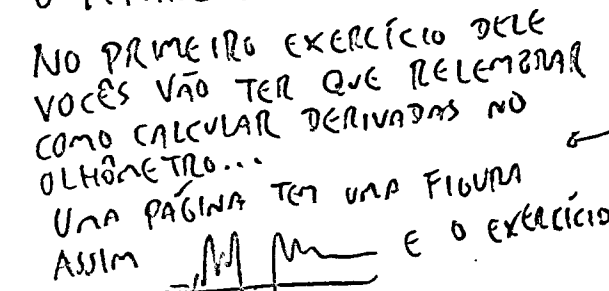 NO PRIMEIRO EXERCÍCIO DELE
VOCÊS VÃO TER QUE RELEMBRAR
COMO CALCULAR DERIVADAS NO
OLHÔMETRO...
UMA PÁGINA TEM UMA FIGURA
ASSIM E O EXERCÍCIO